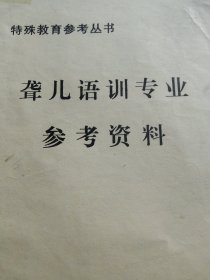 特殊教育参考丛书
聋儿语训专业
参考资料